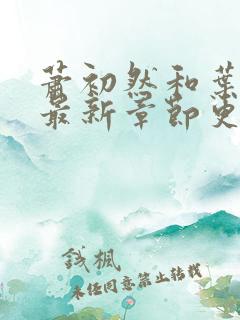 萧初然和葉
最新章節
錢楓
未經同意禁止轉載